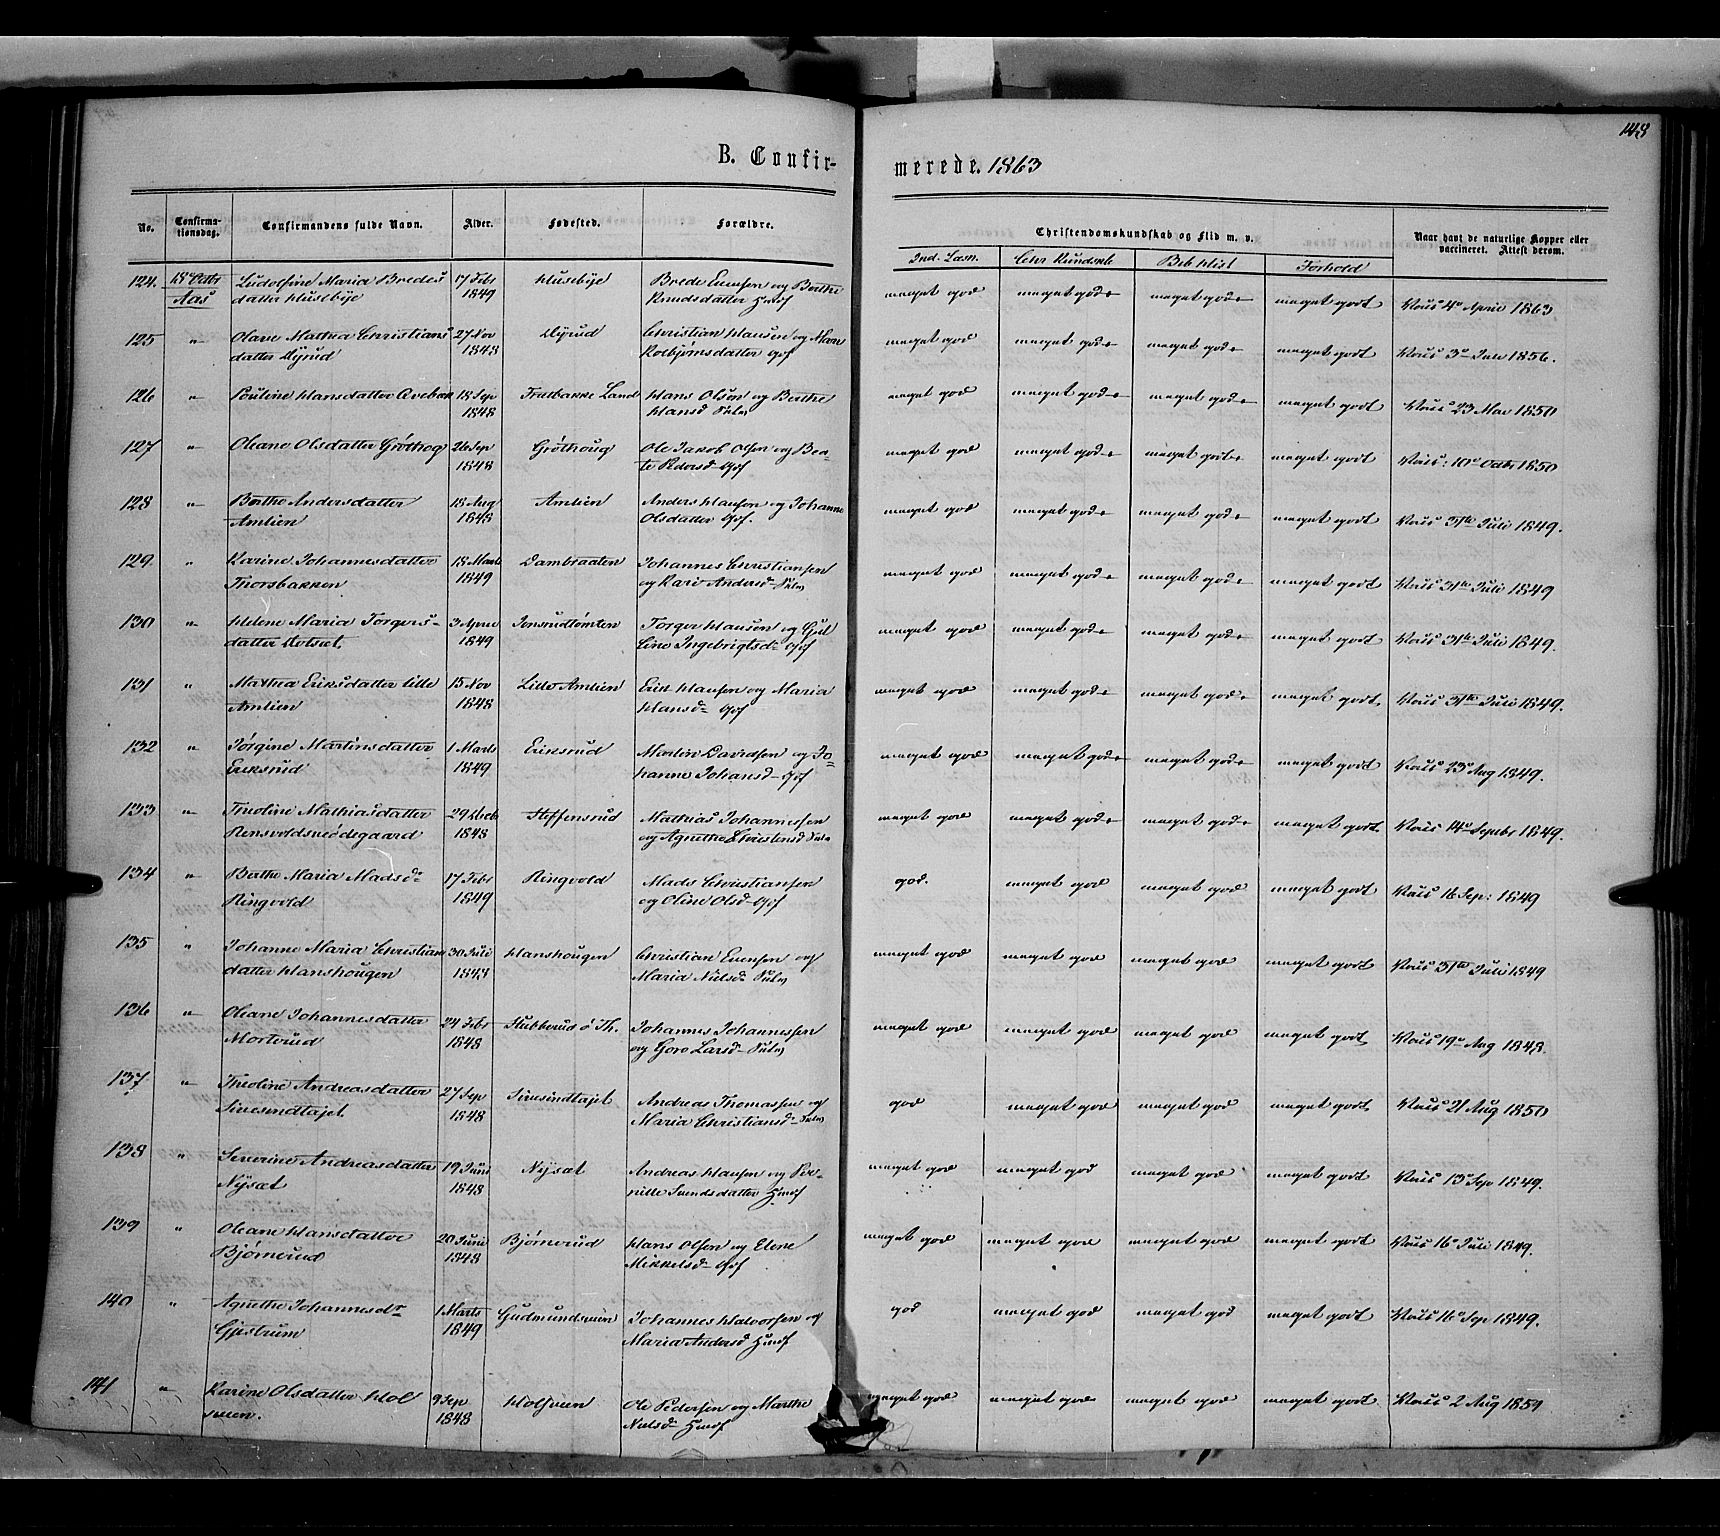 148
B. Confir-
merede. 1863
No.
Confirma-
tionsdag.
Confirmandens fulde Navn.
Alder.
Fødested.
Forældre.
Christendomskundskab og Flid m. v.
Naar havt de naturlige Kopper eller
vaccineret. Attest derom.
Ind. Læsn.
Chr. Kundsk
Bib Hist
Forhold
124. 18de Octbr Ludolfine Maria Bredes 17 Febr Husebije Brede Evensen og Berthe meget god meget gode meget gode meget godt Vacc 4de April 1863
Aas datter Husebije 1849 Knudsdatter Hmsf
125 " Olave Mathea Christians 27 Nov Dyrud Christian Hansen og Mari meget god meget gode meget gode meget godt Vacc 3de 1856.
datter Dyrud 1848 Kolbjørnsdatter Gjf
126 " Pouline Hansdatter 18 Sep Land Hans Olsen og Berthe meget god meget gode meget gode meget godt Vacc 23 Mar 1850
1848 Hansd
127 " Oleane Olsdatter Grøthog 26 Sep Grøthoug Ole Jacob Olsen og Bea- meget god meget gode meget gode meget godt Vacc: 10de Octbr 1850
1848 te Pedersd Gjf
128 " Berthe Andersdatter 18 Aug Amlien Anders Hansen og Johanne meget god meget gode meget gode meget godt Vacc 31te Juli 1849.
Amlien 1848 Olsdatter Gjf.
129. " Karine Johannesdatter 18 Marts Dambraaten Johannes Christiansen meget god meget gode meget gode meget godt Vacc 31te Juli 1849
Thorsbakken 1849 og Kari Andersd
130 " Helene Maria Torgers- 3 April Jonsrudtømten Torger Hansen og Gul meget god meget gode meget gode meget godt Vacc 31te Juli 1849.
datter 1849 line Ingebrigtsdr Gjf
131 " Mathea Eriksdatter lille 15 Nov Lille Amlien Erik Hansen og Maria meget god meget gode meget gode meget godt Vacc 31te Juli 1849.
Amlien 1848 Hansdr Gjf
132 " Jørgine Martinsdatter 1 Marts Eriksrud Martin Davidsen og Jo- meget god meget gode meget gode meget godt Vacc 23de Aug 1849.
Eriksrud 1849 hanne Johansd Gjf
133 " Theoline Mathiasdatter 29 Steffensrud Mathias Johannessen meget god meget gode meget gode meget godt Vacc 14de Septbr 1849.
Rensvoldsnedegaard 1848 og Agnethe Christensd
134 " Berthe Maria Madsdr 17 Febr Ringvold Mads Christiansen god. meget god meget god meget godt Vacc 16 Sep: 1849
Ringvold 1849 og Oline Olsd Gjf
135 " Johanne Maria Christian 30 Juli Hanshougen Christian Evensen og meget god meget god meget god meget godt Vacc 31te Juli 1849
datter Hanshougen 1848 Maria Nielsdr
136 " Oleane Johannesdatter 24 Febr Stubberud ø Th. Johannes Johannessen meget god meget god meget god meget godt Vacc 19de Aug 1848.
Morterud 1848 og Goro Larsd
137 " Theoline Andreasdatter 27 Sep Sivesindtajet Andreas Thomassen og god meget god meget god meget godt Vacc 21 Aug 1850
Sivesindtajet 1848 Maria Christiansd
138 " Severine Andreasdatter 19 Juni Nysæt Andreas Hansen og Per- meget god meget god meget god meget godt Vacc 13de Sep 1849.
Nysæt 1848 nille Svendsdatter Hmsf
139 " Oleane Hansdatter 20 Juni Bjørnerud Hans Olsen og Elene meget god meget god meget god meget godt Vacc 16de Juli 1849.
Bjørnerud 1848 Mikkelsd Gjf
140 " Agnethe Johannesdr 1 Marts Gudmundsveien Johannes Halvorsen og god meget god meget god meget godt Vacc 16de Sep 1849.
Gjestrum 1849 Maria Andersd Hmsf
141 " Karine Olsdatter Hol 9 Sep Holsveen Ole Pedersen og Marthe meget god meget god meget god meget godt Vacc 2 Aug 1859
sveen. 1848 Nielsd Hmsf